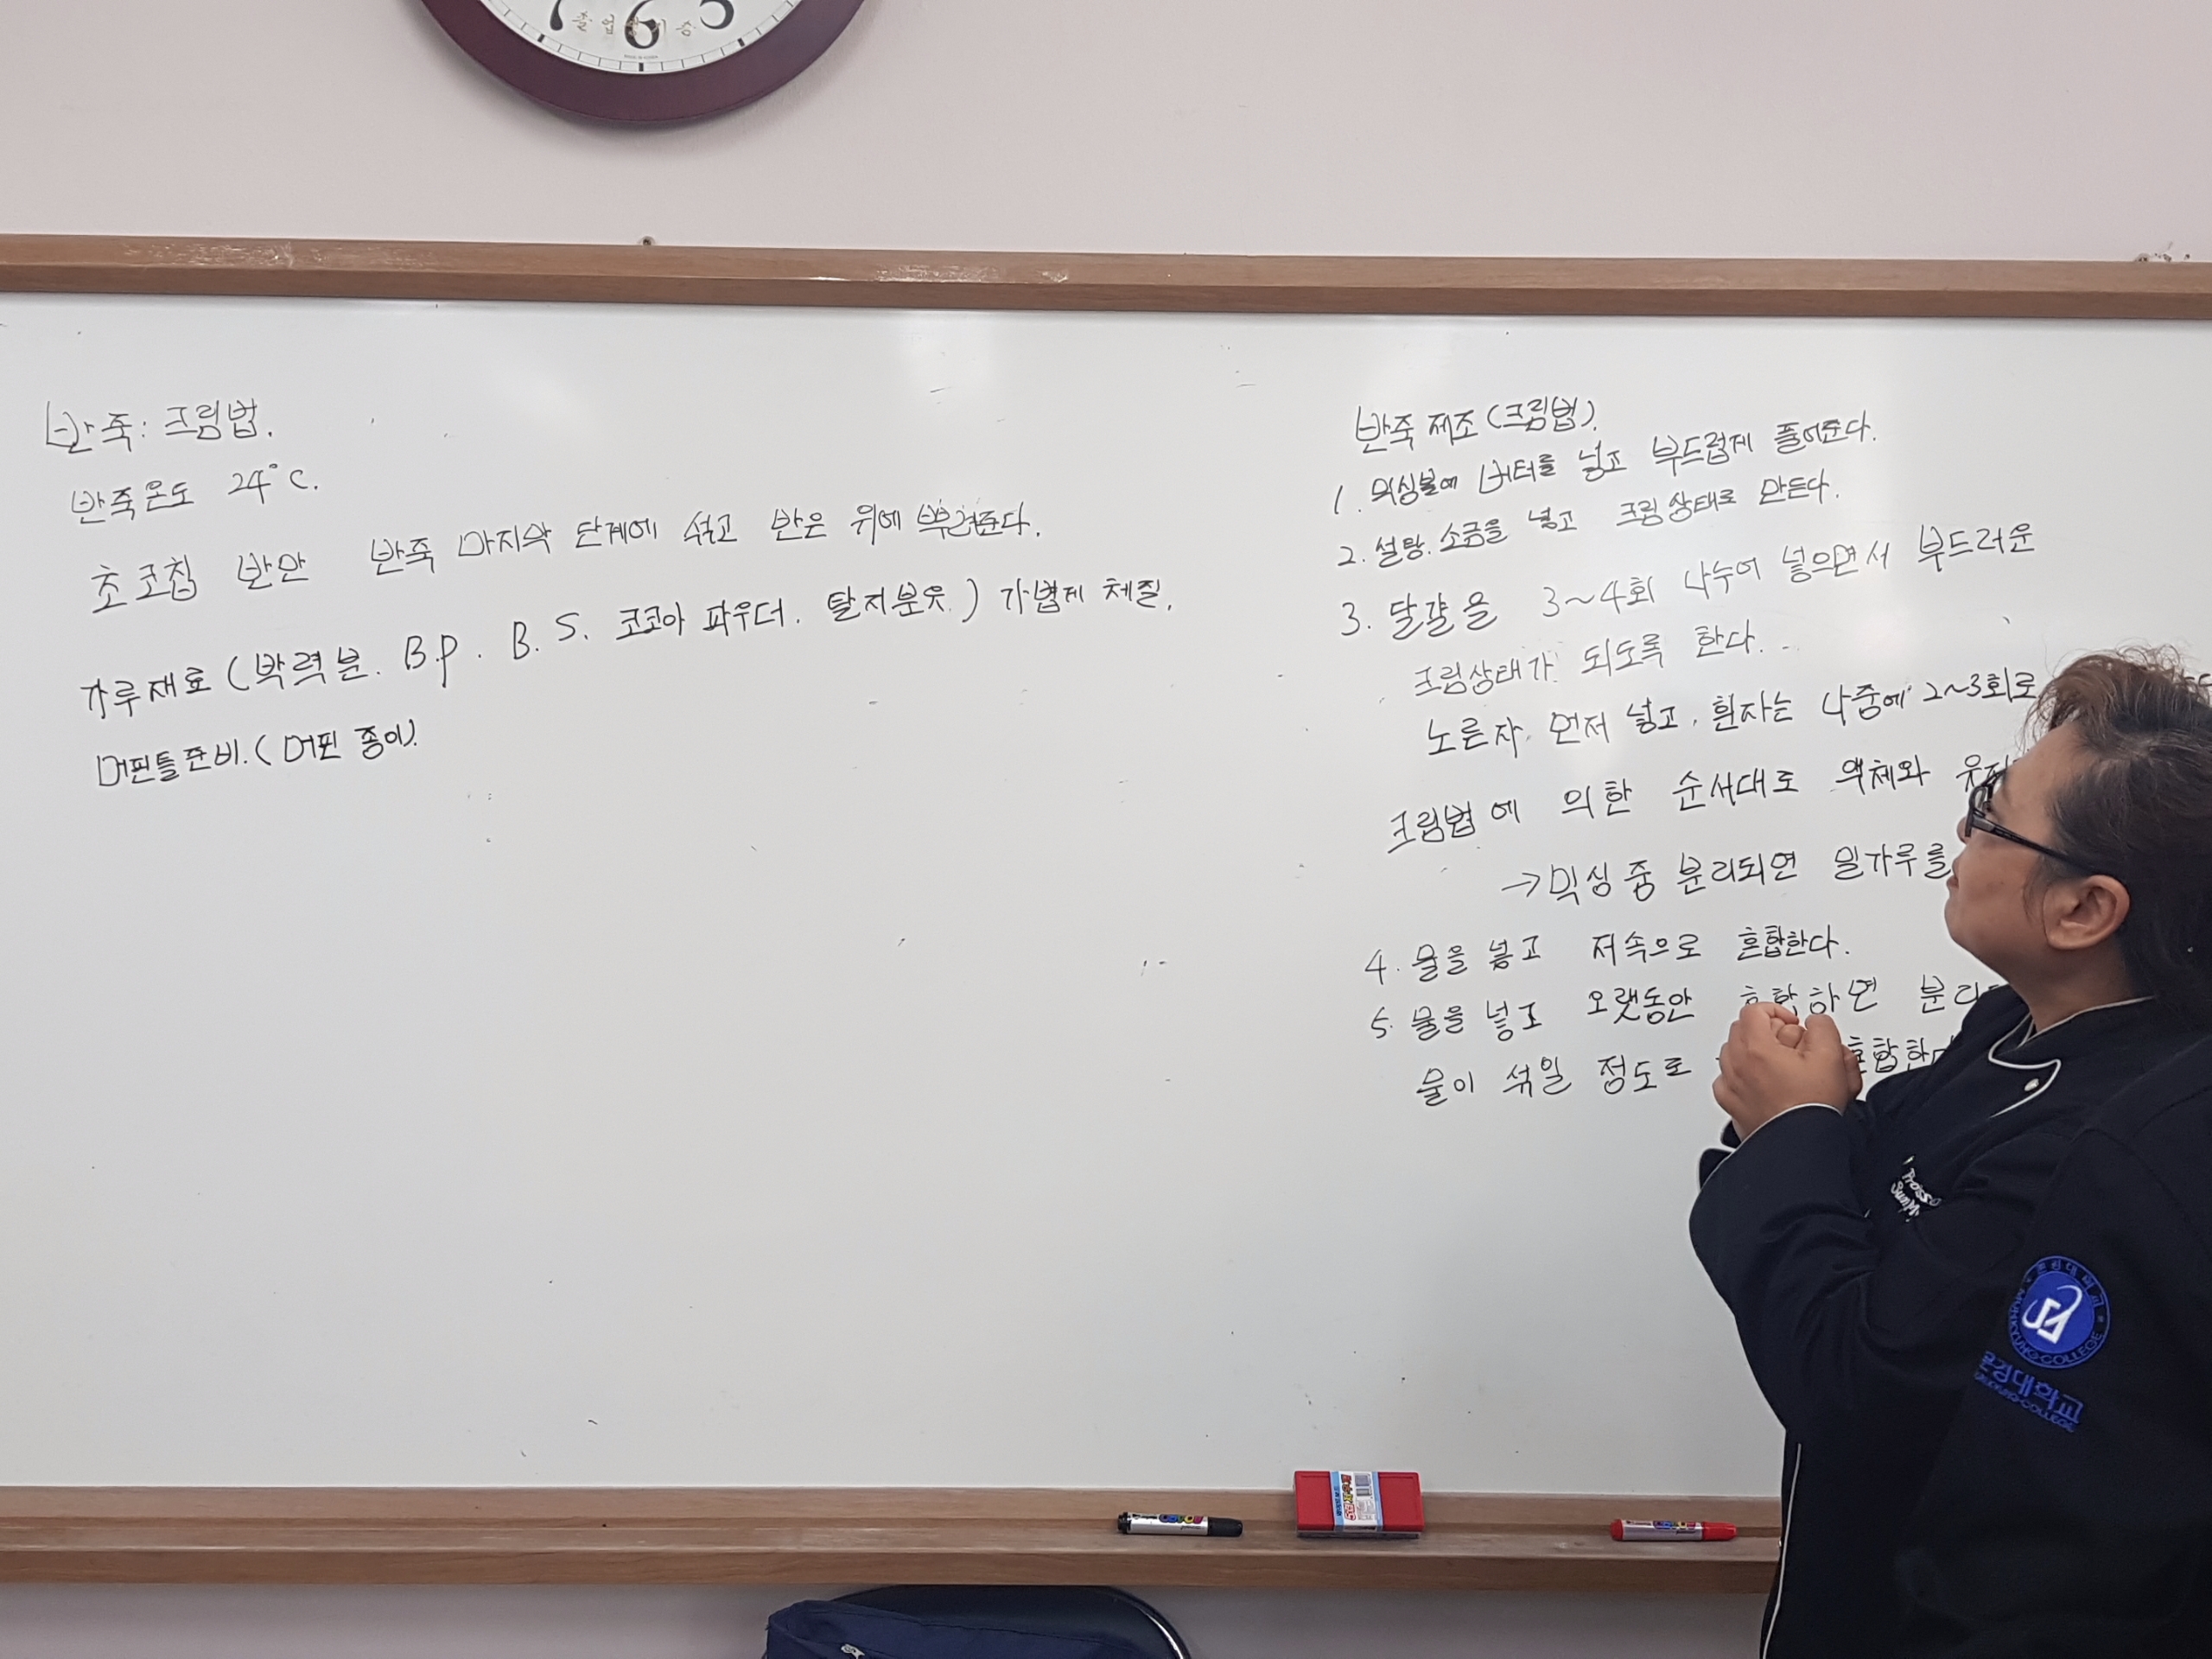 7 6 5
졸업 기증
반죽: 크림법.
반죽온도 24°C.
초코칩 반안 반죽 마지막 단계에 섞고 반은 위에 뿌려준다.
가루재료 (박력분. B.P. B.S. 코코아 파우더. 탈지분유.) 가볍게 체질.
머핀틀준비. (머핀 종이).
반죽 제조 (크림법).
1. 믹싱볼에 버터를 넣고 부드럽게 풀어준다.
2. 설탕. 소금을 넣고 크림 상태로 만든다.
3. 달걀을 3~4회 나누어 넣으면서 부드러운
크림상태가 되도록 한다.
노른자. 먼저 넣고, 흰자는 나중에 2~3회로
크림법에 의한 순서대로 액체와
→ 믹싱 중 분리되면 밀가루를
4. 물을 넣고 저속으로 혼합한다.
5. 물을 넣고 오랫동안 혼합하면
물이 섞일 정도로
MUNKYUNG COLLEGE
문경대학교